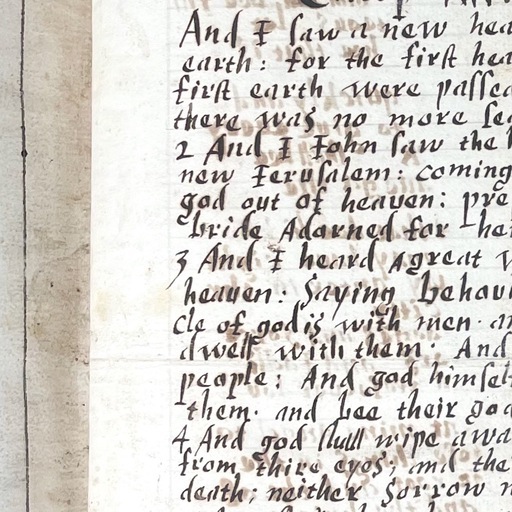 And I saw a new hea
earth: for the first hea
first earth were passed
there was no more sea
2 And I Iohn saw the h
new Ierusalem: coming
god out of heauen: pre
bride Adorned for her
3 And I heard A great v
heauen: Saying behou
cle of god is with men. an
dwell with them: And
people: And god himself
them. and bee their god
4 And god shall wipe awa
from thire eyes; and the
death; neither sorrow n